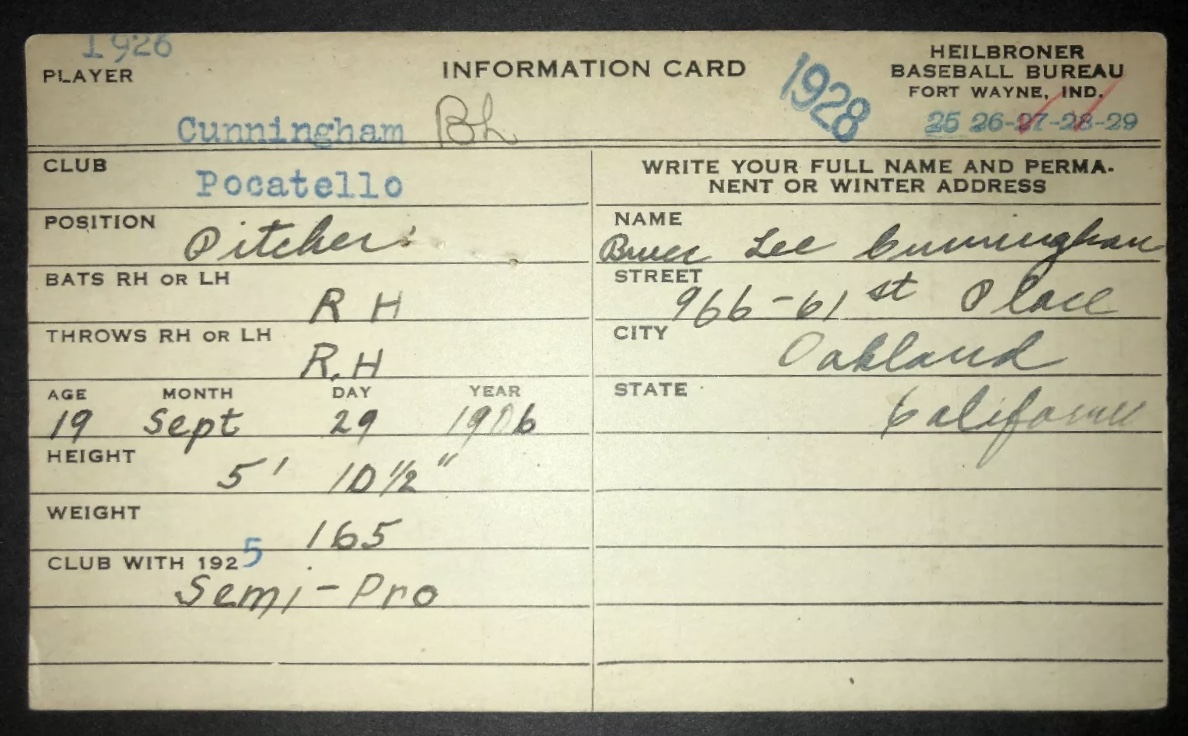 1926
PLAYER
INFORMATION CARD
1928
HEILBRONER
BASEBALL BUREAU
FORT WAYNE, IND.
25 26-27-28-29
Cunningham
CLUB
Pocatello
WRITE YOUR FULL NAME AND PERMA-
NENT OR WINTER ADDRESS
POSITION Pitcher
NAME
Bruce Lee Cunningham
BATS RH OR LH
R H
STREET
966-61st Place
THROWS RH OR LH
R.H
CITY
Oakland
AGE MONTH DAY YEAR
19 Sept 29 1906
STATE
California
HEIGHT
5' 10 1/2"
WEIGHT
165
CLUB WITH 1925
Semi-Pro